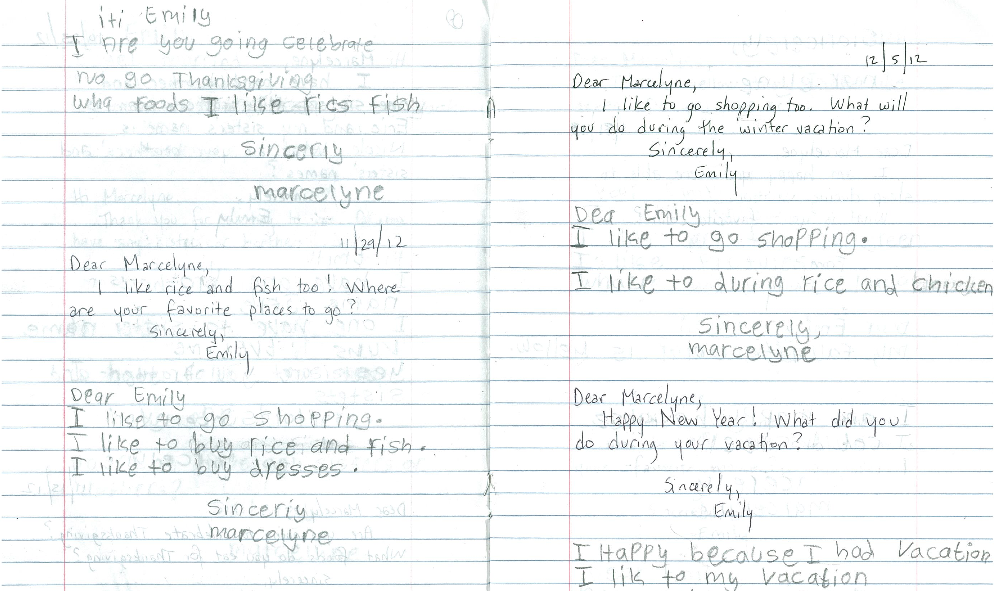 iti Emily
I Are you going celebrate
no go Thanksgiving
wha foods I like rics fish
Sincerly
marcelyne
11/29/12
Dear Marcelyne,
I like rice and fish too! Where
are your favorite places to go?
Sincerely,
Emily
Dear Emily
I like to go shopping.
I like to buy rice and fish.
I like to buy dresses.
Sinceriy
marcelyne
12/5/12
Dear Marcelyne,
I like to go shopping too. What will
you do during the winter vacation?
Sincerely,
Emily
Dea Emily
I like to go shopping.
I like to during rice and chicken
Sincerely,
marcelyne
Dear Marcelyne,
Happy New Year! What did you
do during your vacation?
Sincerely,
Emily
I Happy because I had vacation
I lik to my vacation